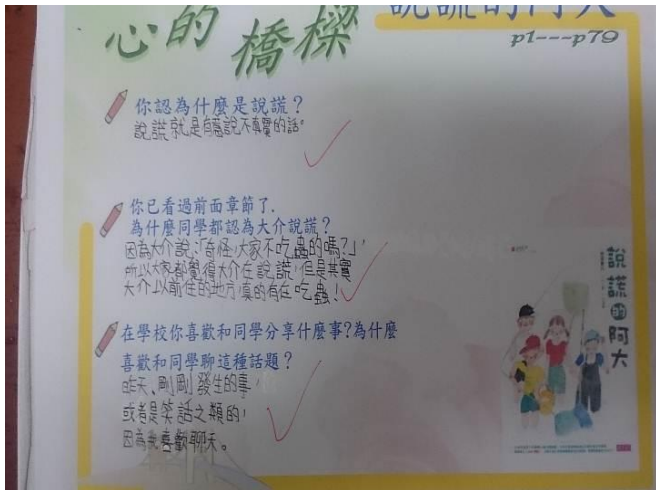 心的橋樑
說謊的阿大
p1---p79
你認為什麼是說謊？
說謊就是有意說不真實的話。
你已看過前面章節了.
為什麼同學都認為大介說謊？
因為大介說:「奇怪,大家不吃蟲的嗎?」,
所以大家都覺得大介在說謊,但是其實
大介以前住的地方,真的有在吃蟲!
在學校你喜歡和同學分享什麼事?為什麼
喜歡和同學聊這種話題？
昨天、剛剛發生的事,
或者是笑話之類的,
因為我喜歡聊天。
說謊的阿大